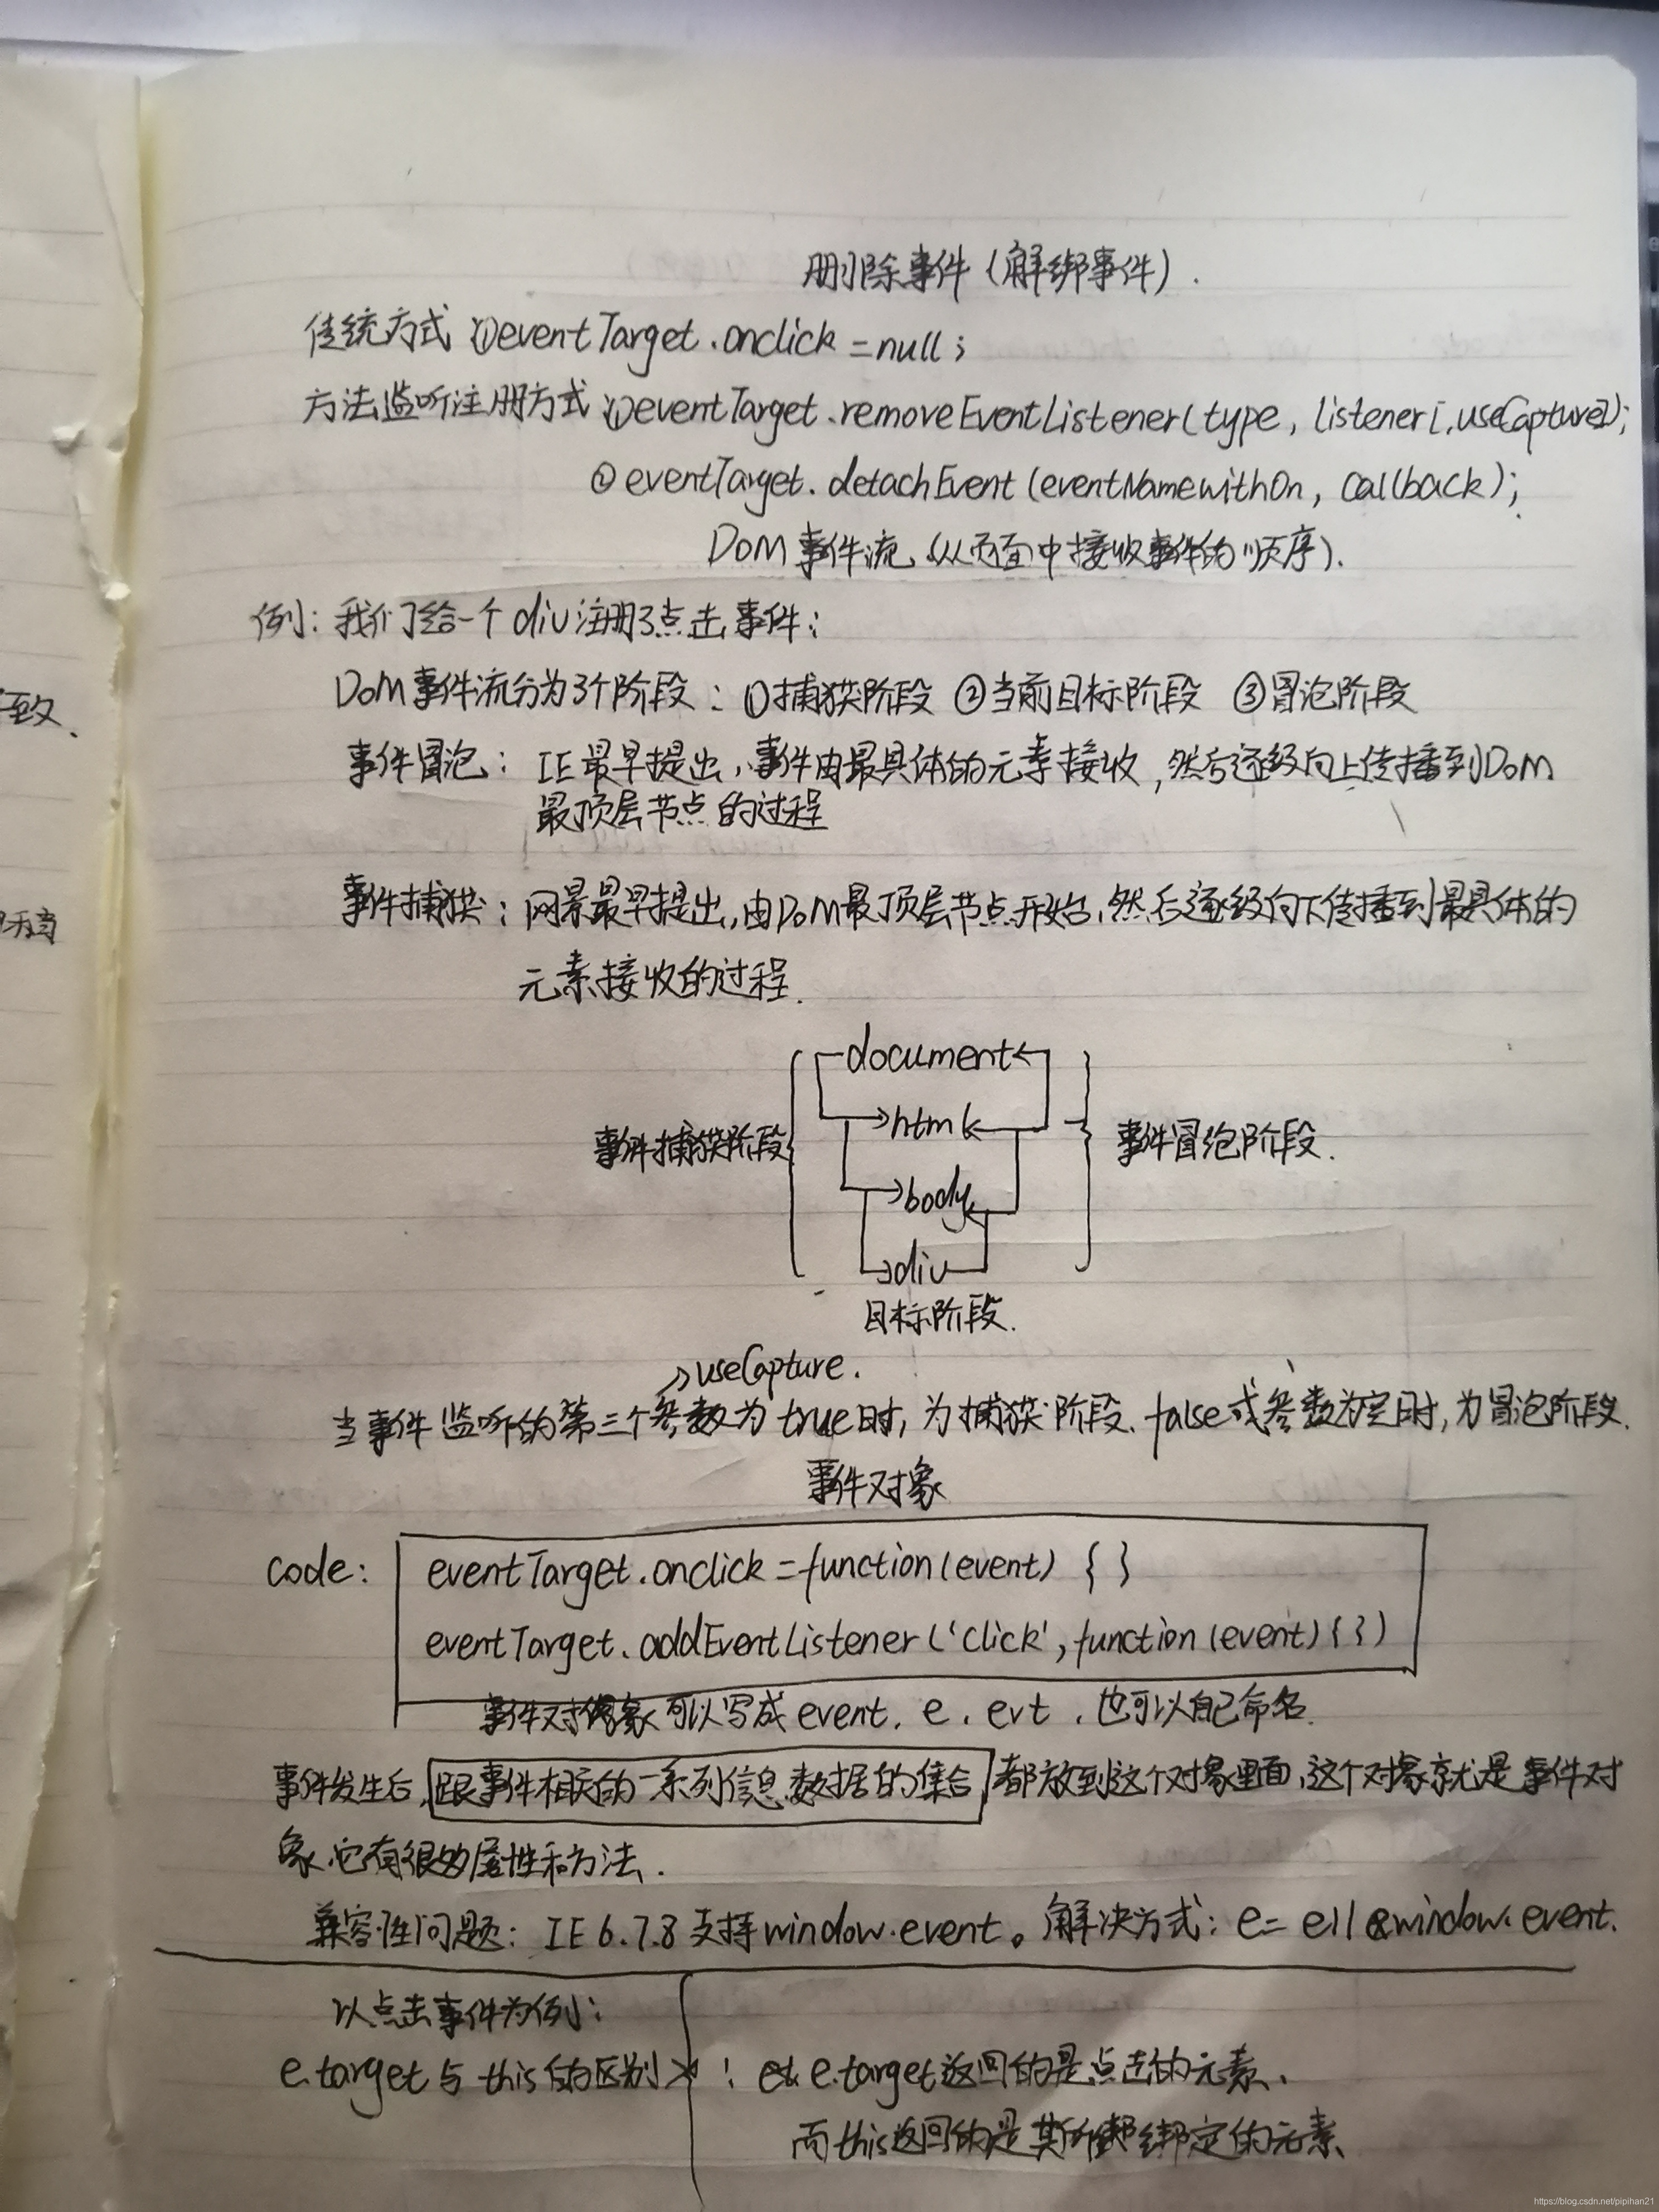 删除事件(解绑事件).
传统方式:①eventTarget.onclick=null;
方法监听注册方式:①eventTarget.removeEventListener(type, listener[,useCapture]);
②eventTarget.detachEvent(eventNamewithOn, callback);
DOM事件流.(从页面中接收事件的顺序).
例:我们给一个div注册了点击事件:
DOM事件流分为3个阶段:①捕获阶段 ②当前目标阶段 ③冒泡阶段
至致、
事件冒泡:IE最早提出,事件由最具体的元素接收,然后逐级向上传播到DOM
最顶层节点的过程
事件捕获:网景最早提出,由DOM最顶层节点开始,然后逐级向下传播到最具体的
元素接收的过程.
document
html
事件捕获阶段
事件冒泡阶段.
body
div
目标阶段.
→useCapture.
当事件监听的第三个参数为true时,为捕获阶段.false或参数为空时,为冒泡阶段.
事件对象
code: eventTarget.onclick=function(event) { }
eventTarget.addEventListener('click',function(event){ })
事件对象可以写成event. e. evt .也可以自己命名.
事件发生后,跟事件相关的一系列信息数据的集合都放到这个对象里面,这个对象就是事件对
象.它有很多属性和方法.
兼容性问题:IE6.7.8支持window.event。解决方式:e= e||window.event.
以点击事件为例:
e.target与this的区别
: e.target返回的是点击的元素、
而this返回的是其所绑定的元素
https://blog.csdn.net/pipihan21